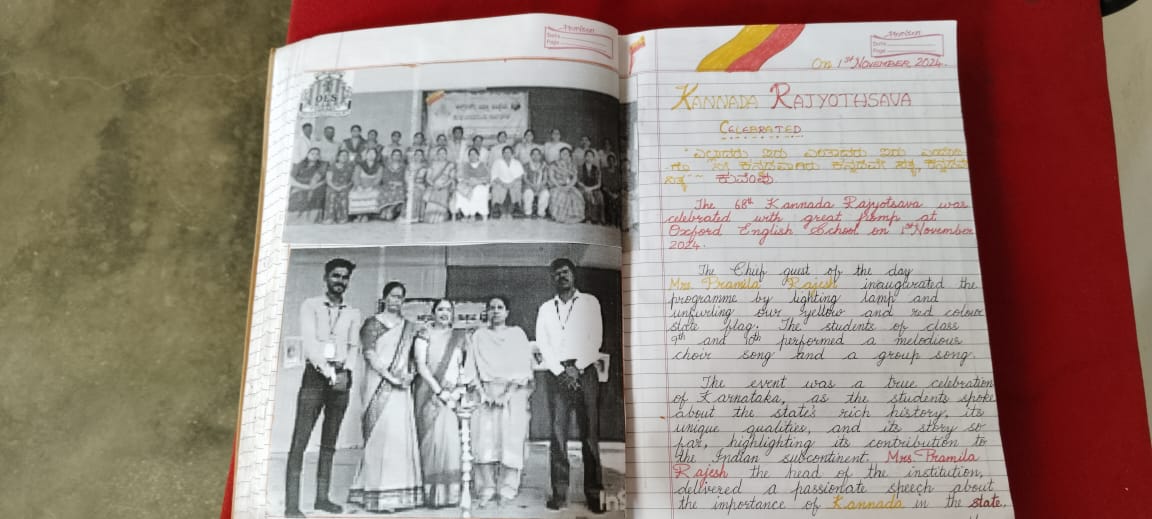 OLS
Date
Page
Date
Page
On 1st November 2024.
KANNADA RAJYOTHSAVA
CELEBRATED
ಎಲ್ಲಾದರು ಇರು ಎಂತಾದರು ಇರು
ನೀ ಕನ್ನಡವಾಗಿರು ಕನ್ನಡವೇ ಸತ್ಯ, ಕನ್ನಡವೇ
ನಿತ್ಯ" ~ ಕುವೆಂಪು
The 68th Kannada Rajyotsava was
celebrated with great pomp at
Oxford English School on 1st November
2024.
The Chief guest of the day
Mrs. Pramila Rajesh inaugurated the
programme by lighting lamp and
unfurling our yellow and red colour
state flag. The students of class
9th and 10th performed a melodious
choir song and a group song.
The event was a true celebration
of Karnataka, as the students spoke
about the state's rich history, its
unique qualities, and its story so
far, highlighting its contribution to
the Indian subcontinent. Mrs. Pramila
Rajesh the head of the institution,
delivered a passionate speech about
the importance of Kannada in the state.